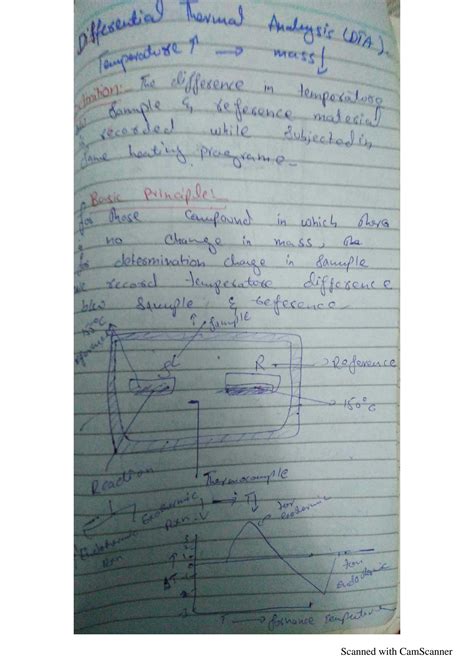 Differential Thermal Analysis (DTA).
Temperature ↑ → mass ↓
Definition:- The difference in temperature
Sample & reference material
recorded while Subjected in
Same heating programe.
Basic Principle:
for those Compound in which there
no change in mass, the
for determination change in Sample
we record temperature difference
b/w Sample & reference.
Sample
R → Reference
150°C
Reaction
Thermocouple
Exothermic Rxn.
for exothermic
Endothermic Rxn
for endothermic
ΔT
T → furnance Temperature
Scanned with CamScanner